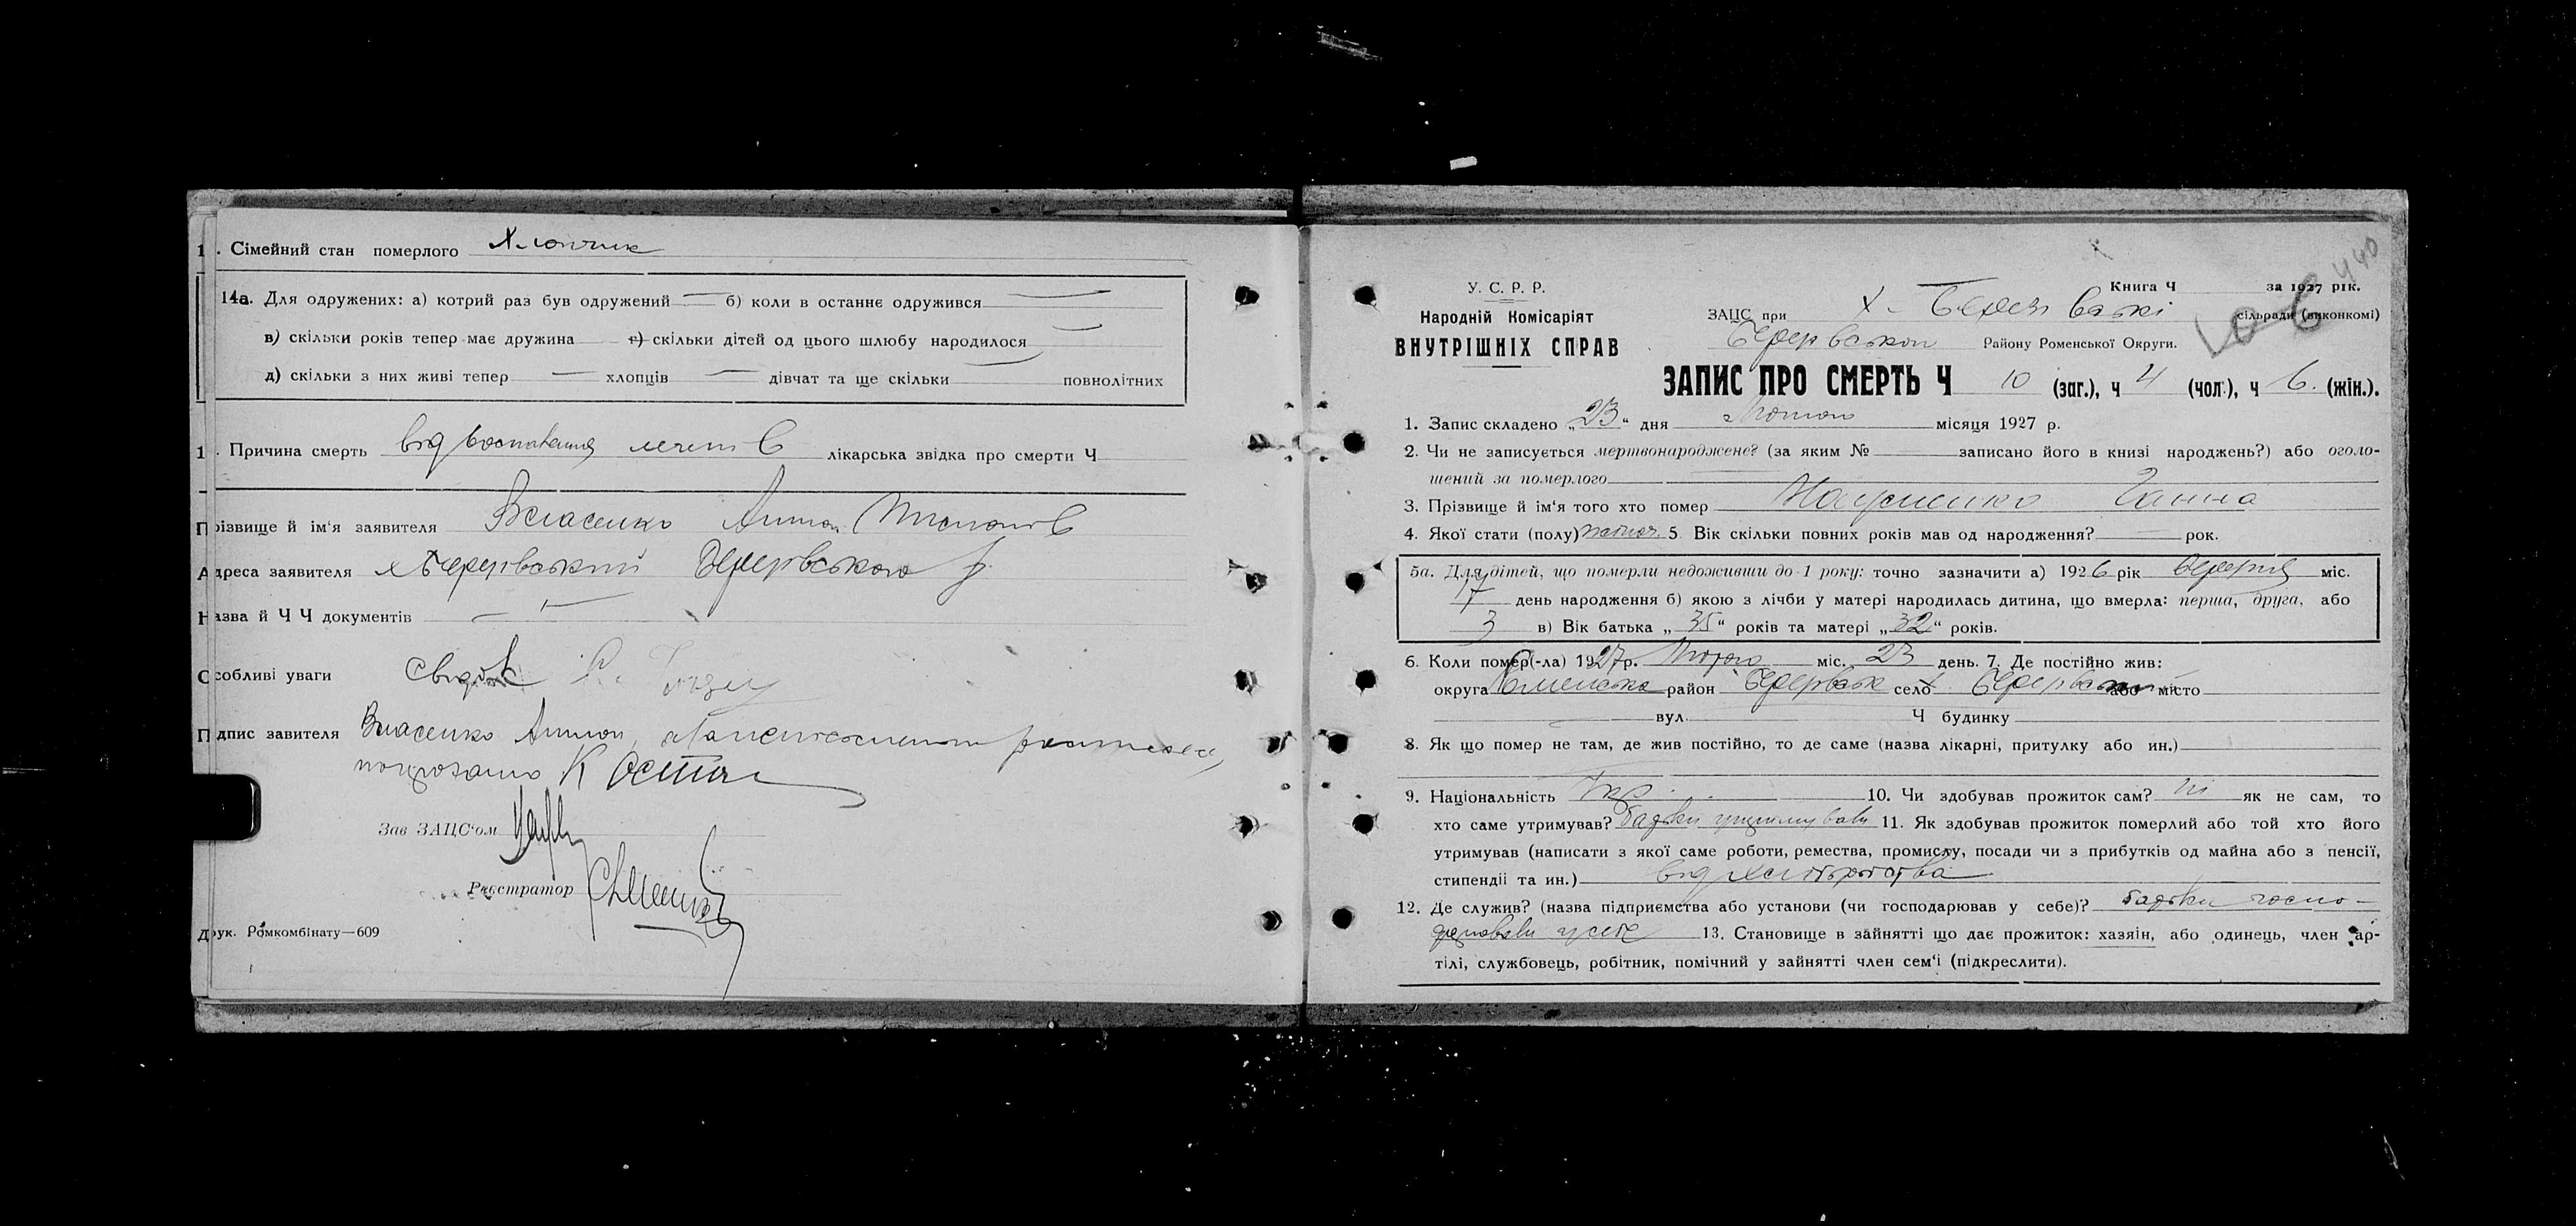 1 . Сімейний стан померлого Хлопчик
14а. Для одружених: а) котрий раз був одружений — б) коли в останнє одружився —
в) скільки років тепер має дружина г) скільки дітей од цього шлюбу народилося —
д) скільки з них живі тепер — хлопців — дівчат та ще скільки повнолітних
1 . Причина смерть від воспаления легенів лікарська звідка про смерти Ч
Прізвище й ім'я заявителя Власенко Антон
Адреса заявителя
Назва й Ч Ч документів — " —
Особливі уваги
Підпис завителя Власенко Антон,
К Остач
Зав ЗАЦС'ом
Реєстратор
Друк. Ромкомбінату—609
У. С. Р. Р.
Народній Комісаріят
ВНУТРІШНІХ СПРАВ
440
Книга Ч за 1927 рік.
ЗАЦС при Х- сільради (виконкомі)
Району Роменської Округи.
ЗАПИС ПРО СМЕРТЬ Ч 10 (заг.), ч 4 (чол.), ч 6. (жін.).
1. Запис складено „23" дня Лютого місяця 1927 р.
2. Чи не записується мертвонароджене? (за яким № записано його в книзі народжень?) або оголо-
шений за померлого
3. Прізвище й ім'я того хто помер Науменко Ганна
4. Якої стати (полу) жіноч. 5. Вік скільки повних років мав од народження? — рок.
5а. Для дітей, що померли недоживши до 1 року: точно зазначити а) 1926 рік міс.
17 день народження б) якою з лічби у матері народилась дитина, що вмерла: перша, друга, або
3 в) Вік батька „35" років та матері „32" років.
6. Коли помер(-ла) 1927 р. Лютого міс. 23 день. 7. Де постійно жив:
округа Роменська район село х. або місто
вул. Ч будинку
8. Як що помер не там, де жив постійно, то де саме (назва лікарні, притулку або ин.)
9. Національність Укр. 10. Чи здобував прожиток сам? ні як не сам, то
хто саме утримував? батьки утримували 11. Як здобував прожиток померлий або той хто його
утримував (написати з якої саме роботи, ремества, промислу, посади чи з прибутків од майна або з пенсії,
стипендії та ин.) від хліборобства
12. Де служив? (назва підприємства або установи (чи господарював у себе)? батьки госпо-
дарювали у себе 13. Становище в зайнятті що дає прожиток: хазяін, або одинець, член ар-
тілі, службовець, робітник, помічний у зайнятті член сем'ї (підкреслити).